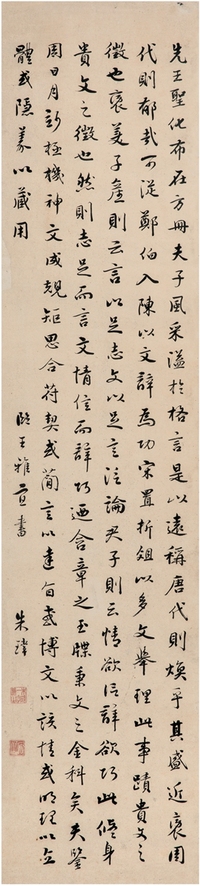 先王聖化布在方冊夫子風采溢於格言是以遠稱唐代則煥乎其盛近褒周
代則郁哉可從鄭伯入陳以文辭為功宋置折俎以多文舉理此事蹟貴文之
徵也褒美子產則云言以足志文以足言泛論君子則云情欲信辭欲巧此修身
貴文之徵也然則志足而言文情信而辭巧迺含章之玉牒秉文之金科矣夫鑒
周日月妙極機神文成規矩思合符契或簡言以達旨或博文以該情或明理以立
體或隱義以藏用
臨王雅宜書 朱